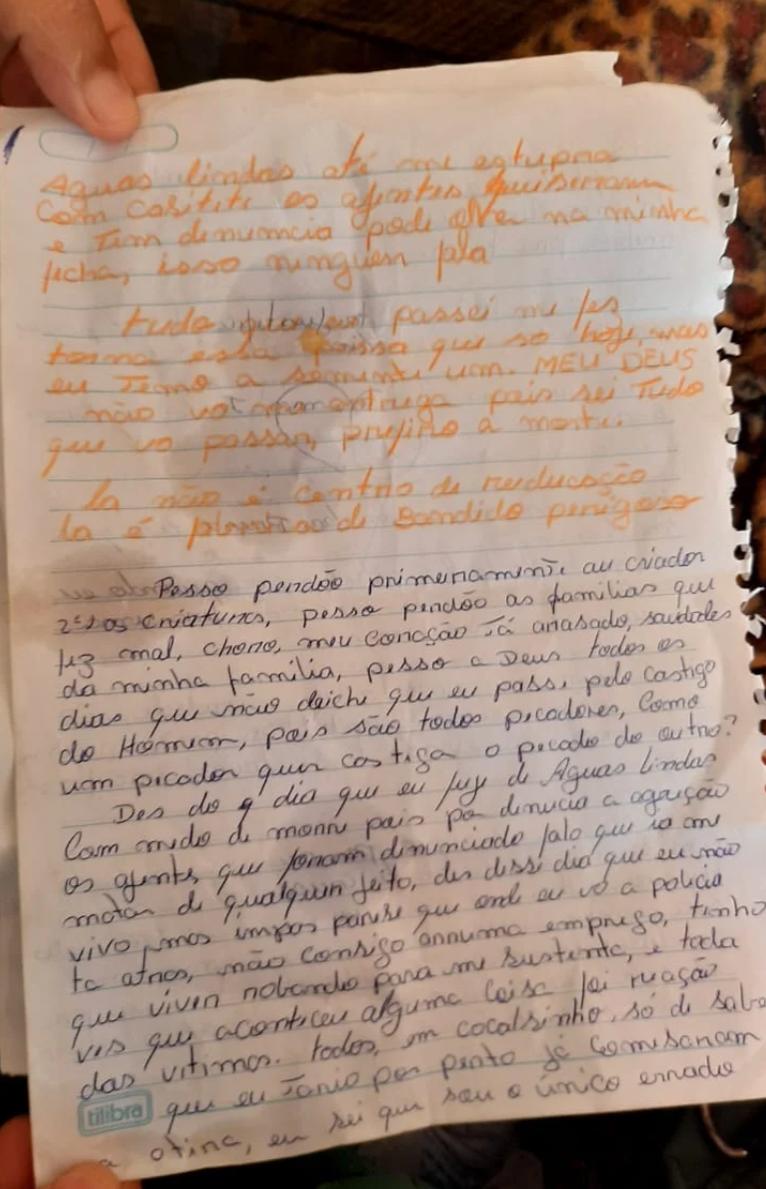 Aguas lindas até me estupra
com casitete os agentes quiseram
e tem denuncia pode olha na minha
ficha, isso ninguem fala
tudo que passei me fez
torna essa que so hoje, mas
eu temo a somente um. MEU DEUS
não vo mim entrega pois sei Tudo
que vo passar, prefiro a morte.
la não é centro de reeducação
la é plantação de Bandido perigoso
Pesso perdão primeramente au criador
2º as criaturas, pesso perdão as familias que
fiz mal, choro, meu coração tá arasado, saudades
da minha familia, pesso a Deus todos os
dias que não deiche que eu passe pelo castigo
do Homem, pois são todos pecadores, Como
um pecador quer castiga o pecado do outro?
Des do dia que eu fugi de Aguas lindas
Com medo de morre pois po denucia a agreção
os agentes que foram denunciado falo que ia me
matar de qualquer jeito, des dissi dia que eu não
vivo mas impas parese que onde eu vo a policia
ta atras, não consigo arruma emprego, tenho
que viver robando para me sustenta, e toda
ves que aconticeu alguma coisa foi reação
das vitimas. todos, em cocalsinho, só di sabe
tilibra que eu Tania por perto já comesaram
a atira, eu sei que sou o único errado